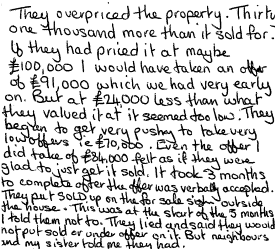 They overpriced the property. Thirty
one thousand more than it sold for.
If they had priced it at maybe
£100,000 I would have taken an offer
of £91,000 which we had very early
on. But at £24,000 less than what
they valued it at it seemed too low. They
began to get very pushy to take very
low offers ie £70,000. Even the offer I
did take of £84,000 felt as if they were
glad to just get it sold. It took 3 months
to complete after the offer was verbally accepted.
They put SOLD up on the for sale sign outside
the house. This was at the start of the 3 months
I told them not to. They lied and said they would
not put sold or under offer on it. But neighbours
and my sister told me they had.